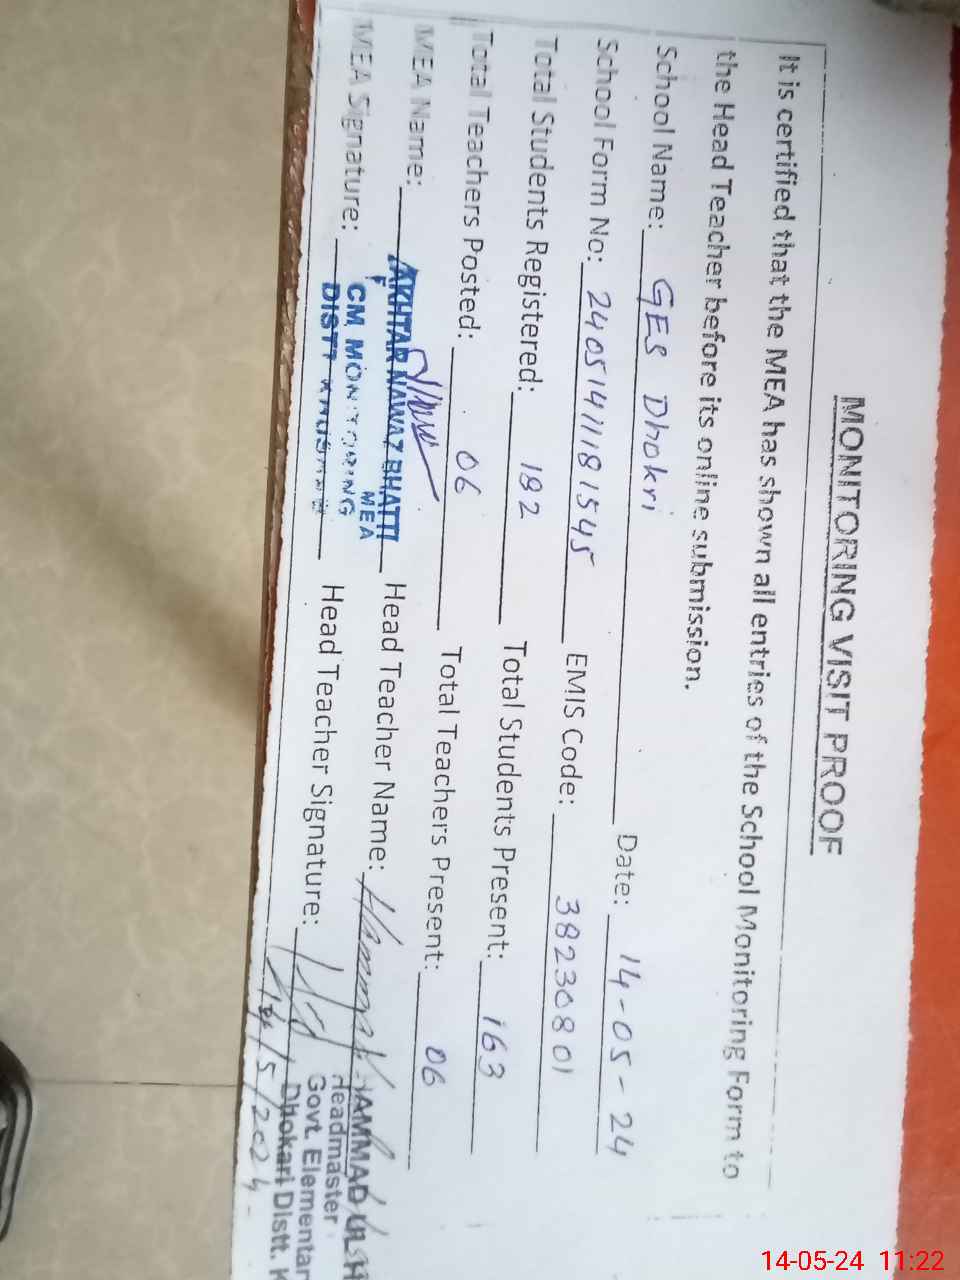 MONITORING VISIT PROOF
It is certified that the MEA has shown all entries of the School Monitoring Form to
the Head Teacher before its online submission.
School Name: GES Dhokri Date: 14-05-24
School Form No: 24051411181545 EMIS Code: 38230801
Total Students Registered: 182 Total Students Present: 163
Total Teachers Posted: 06 Total Teachers Present: 06
MEA Name: AKHTAR NAWAZ BHATTI Head Teacher Name: HAMMAD UL H
MEA
MEA Signature: CM MONITORING Head Teacher Signature:
DISTT
Headmaster
Govt. Elementar
Dhokari Distt. K
14/5/2024
14-05-24 11:22